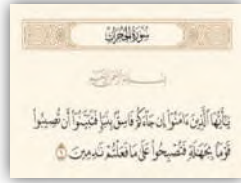 سُورَةُ الحُجُرَاتِ
بِسْمِ اللَّهِ الرَّحْمَٰنِ الرَّحِيمِ
يَٰٓأَيُّهَا ٱلَّذِينَ ءَامَنُوٓا۟ إِن جَآءَكُمْ فَاسِقٌۢ بِنَبَإٍ فَتَبَيَّنُوٓا۟ أَن تُصِيبُوا۟
قَوْمًۢا بِجَهَٰلَةٍ فَتُصْبِحُوا۟ عَلَىٰ مَا فَعَلْتُمْ نَٰدِمِينَ ٦